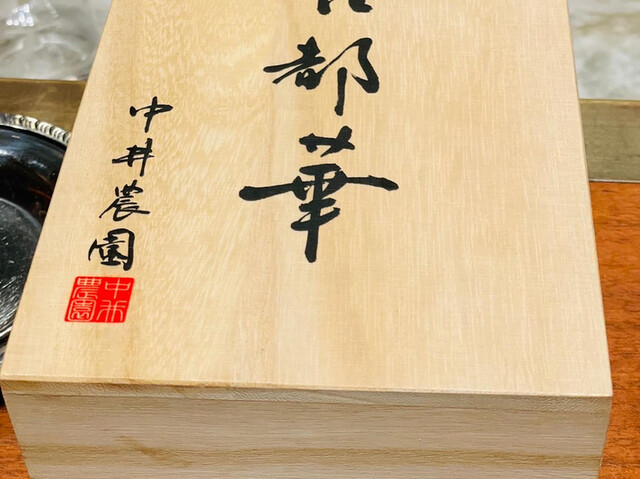 都華
中井農園
中井農園